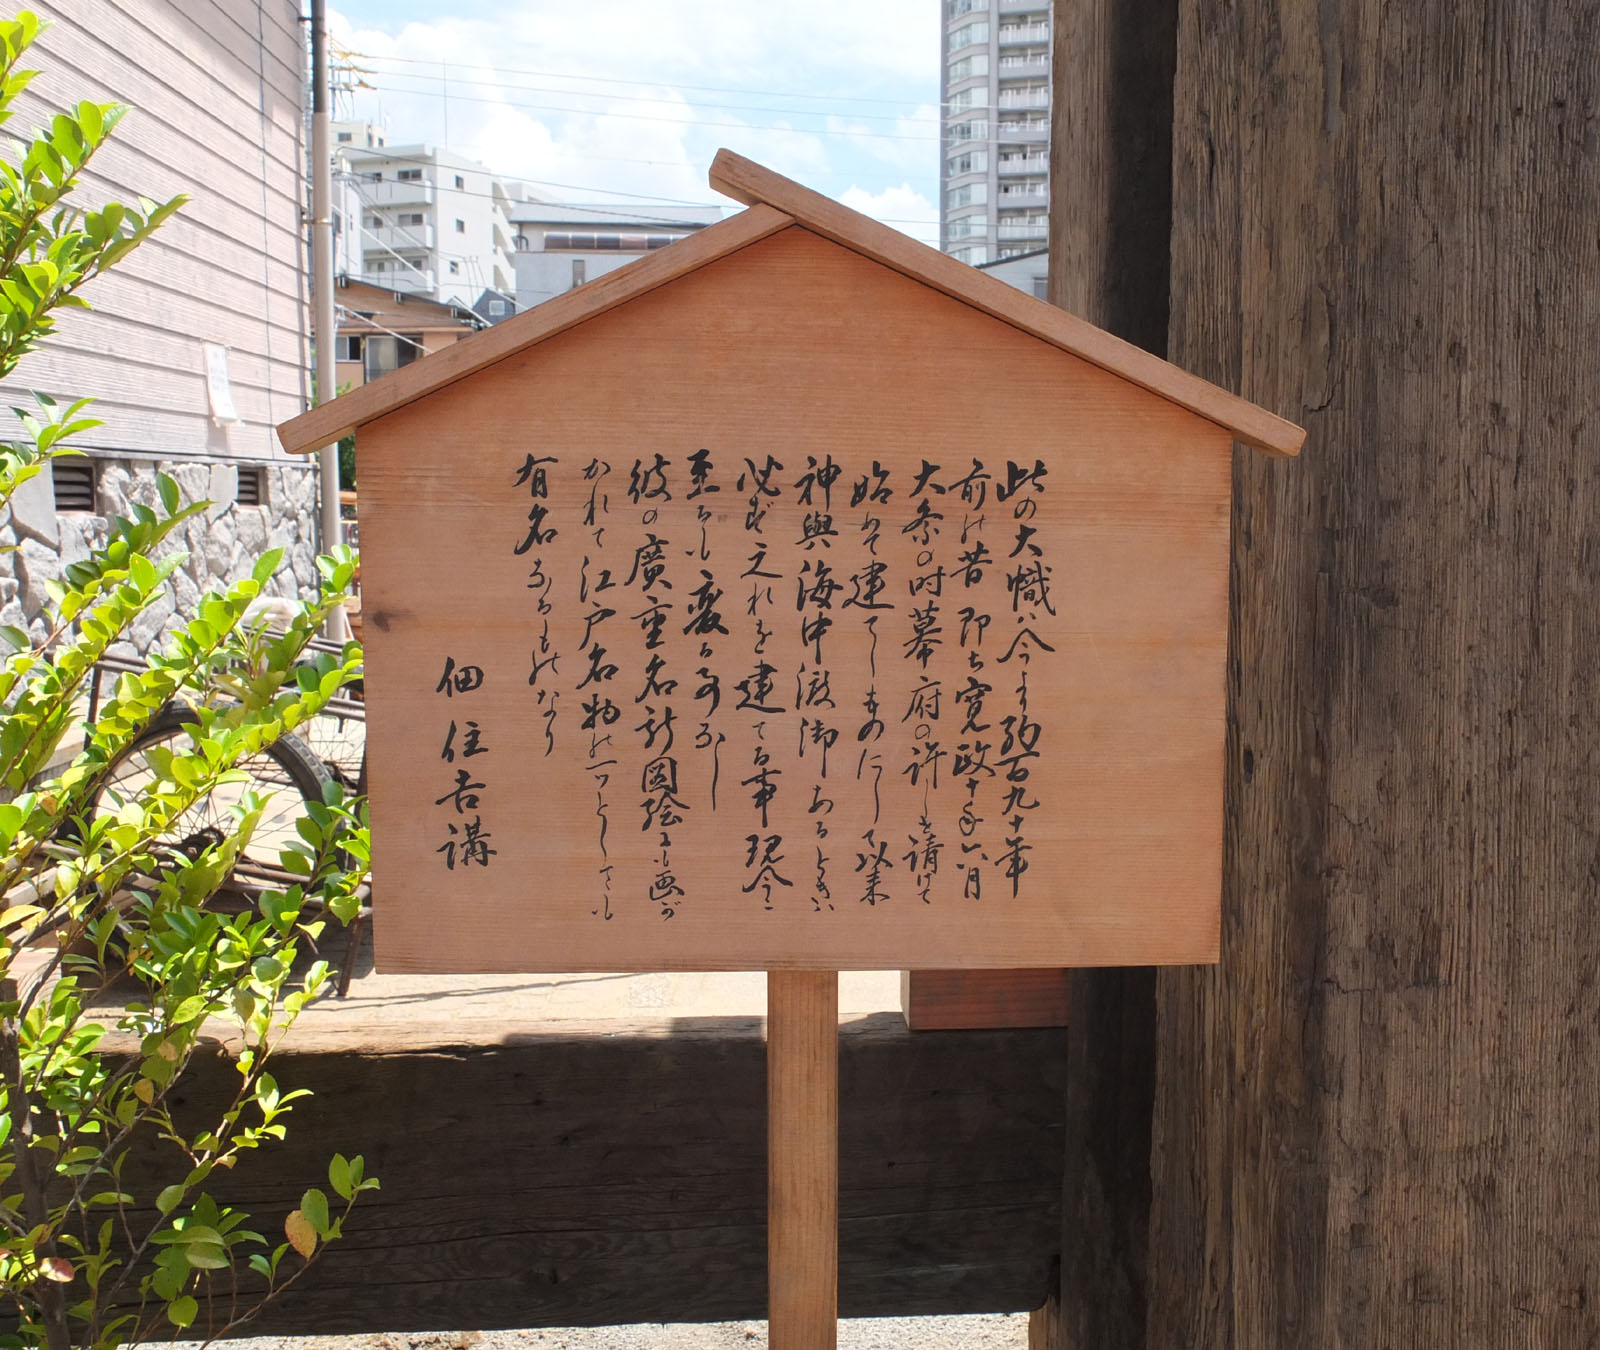 此の大幟ハ今より約百九十年
前の昔即ち寛政十年六月
大祭の時幕府の許しを請けて
始めて建てしものにして以来
神輿海中渡御あるときハ
必ず之れを建てる事現今ニ
至るも変る事なし
彼の廣重名所図絵にも画が
かれて江戸名物の一つとしても
有名なるものなり
佃住吉講